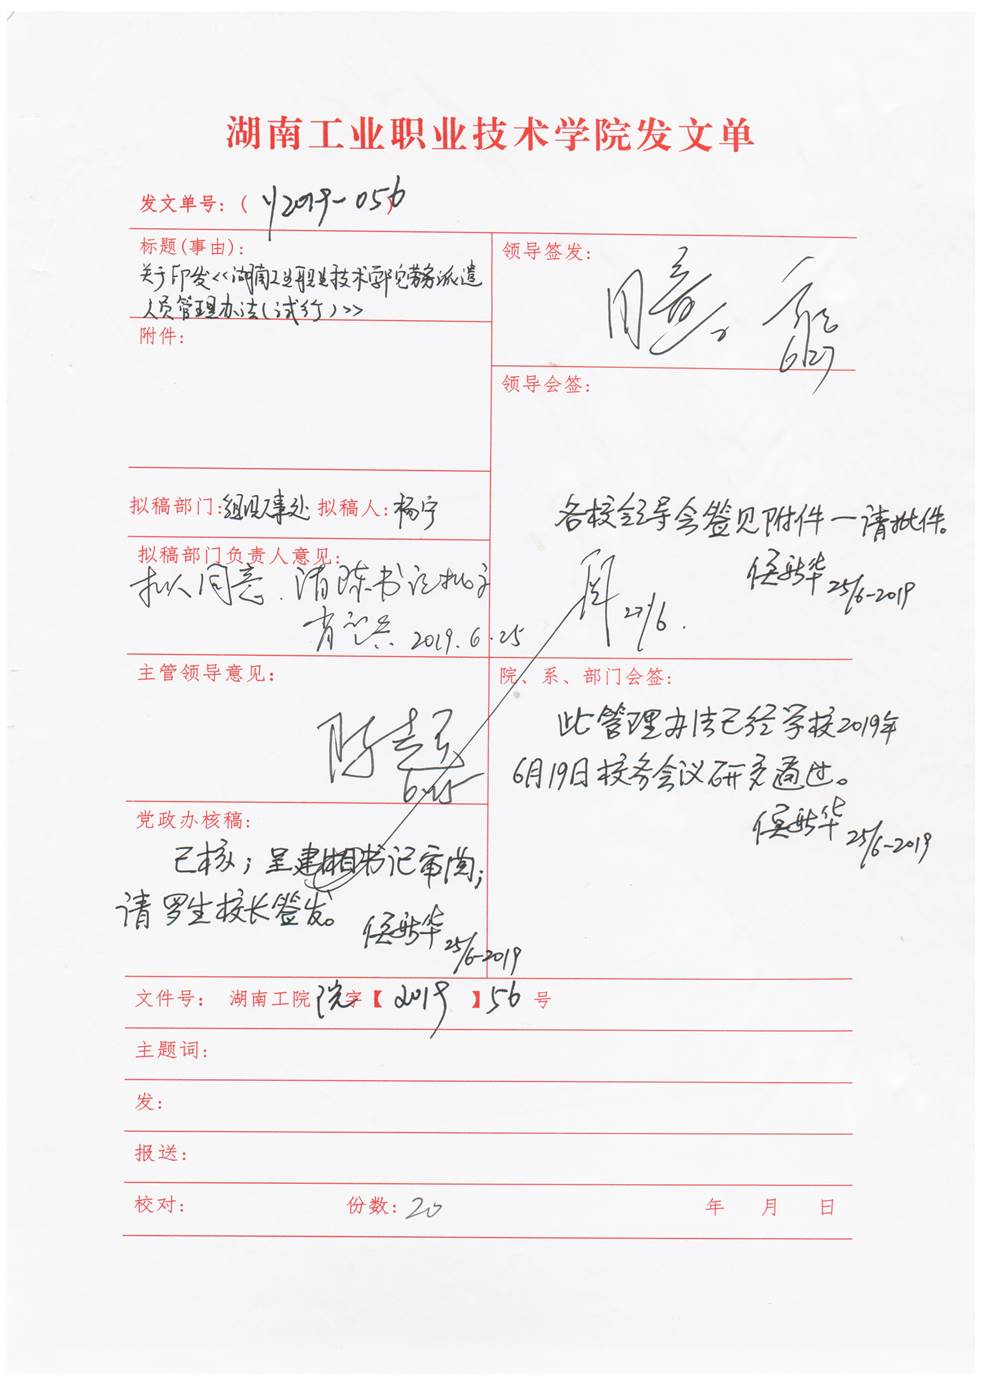 湖南工业职业技术学院发文单
发文单号：( Y2019-056
标题(事由)：
关于印发《湖南工业职业技术学院劳务派遣
人员管理办法(试行)》
附件：
拟稿部门：组织人事处 拟稿人：杨宁
拟稿部门负责人意见：
拟同意．请陈书记批示
2019.6.25
主管领导意见：
6.25
党政办核稿：
已核；呈建湘书记审阅；
请罗生校长签发。
侯新华 25/6-2019
领导签发：
同意。
6.27
领导会签：
各校领导会签见附件一请批件。
侯新华 25/6-2019
周 27/6.
院、系、部门会签：
此管理办法已经学校2019年
6月19日校务会议研究通过。
侯新华 25/6-2019
文件号： 湖南工院院字【 2019 】56 号
主题词：
发：
报送：
校对： 份数：20 年 月 日